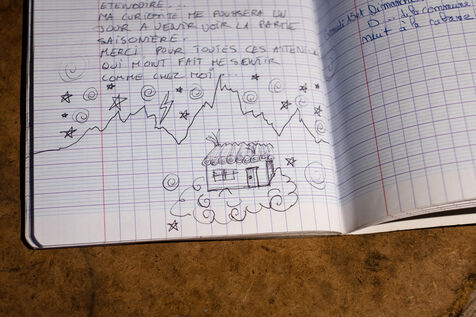 ETEINDOIRE...
MA CURIOSITE ME POUSSERA UN
JOUR A VENIR VOIR LA PARTIE
SAISONIÈRE.
MERCI POUR TOUTES CES ATTENTIONS
QUI M'ONT FAIT ME SENTIR
COMME CHEZ MOI...
Dimanche
la commune
à la cabane